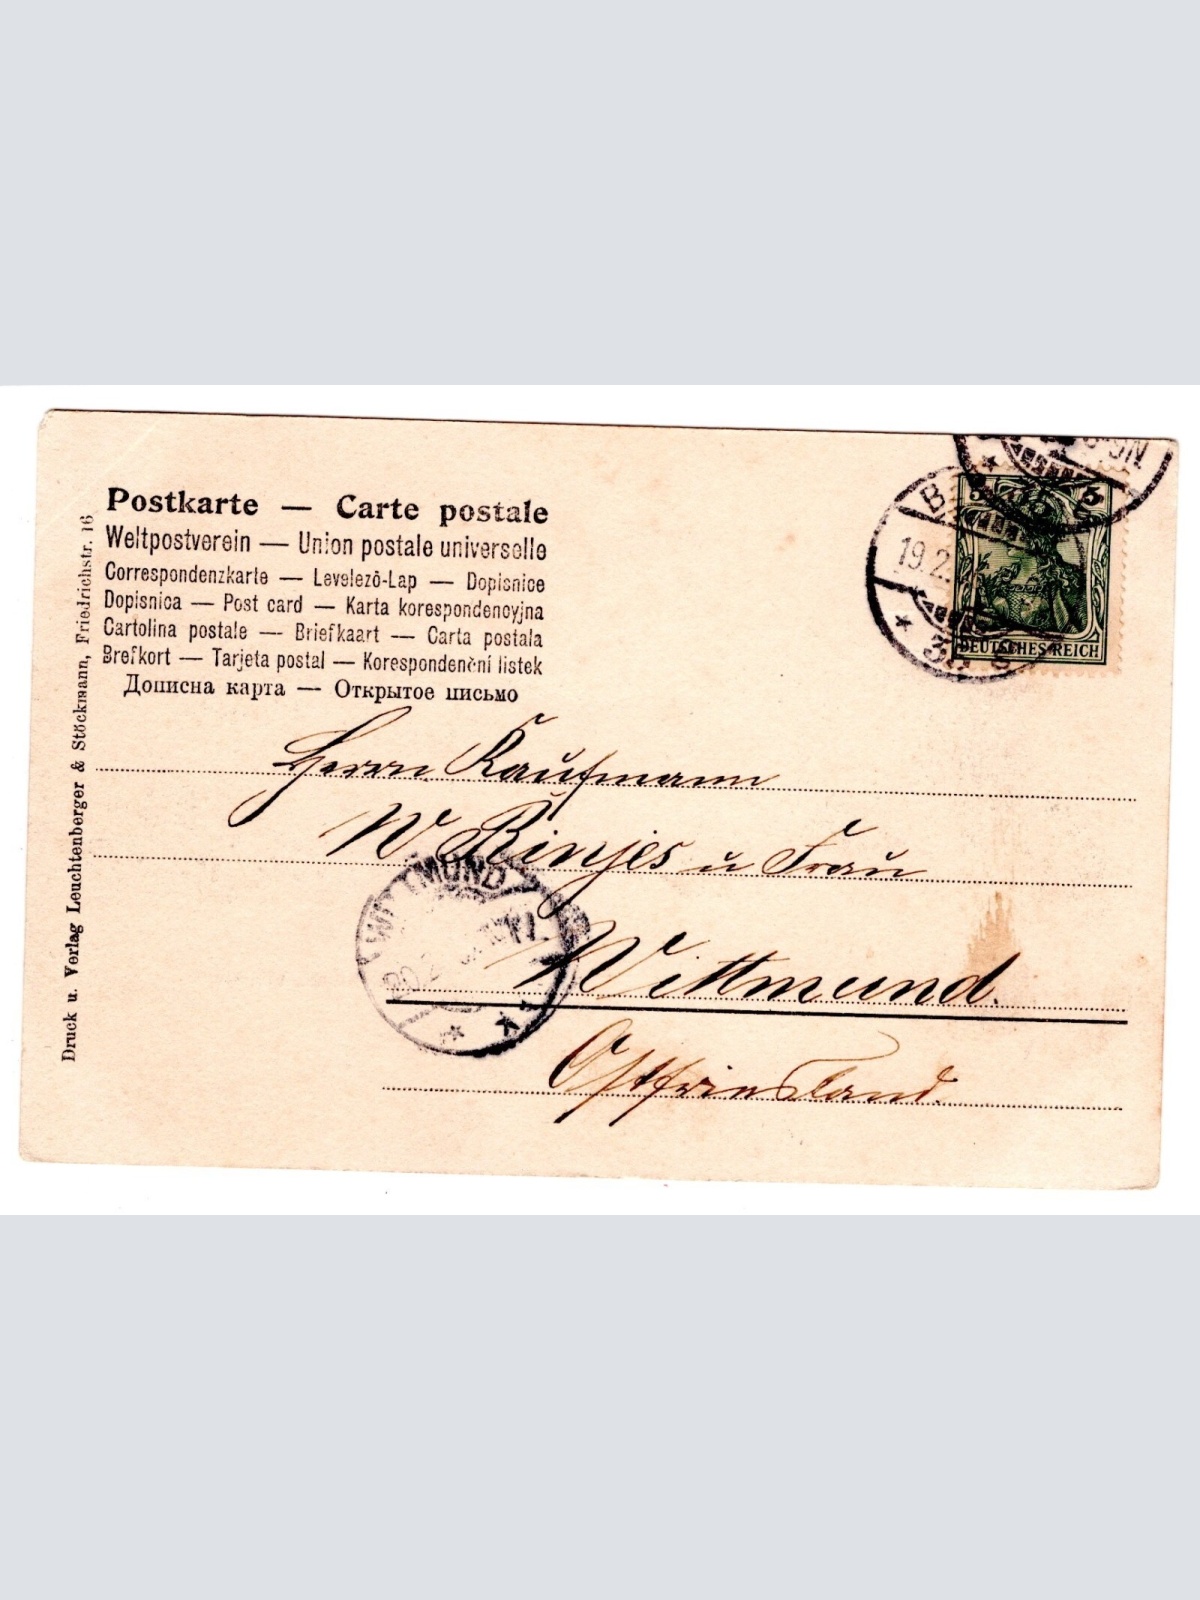 Postkarte — Carte postale
Weltpostverein — Union postale universelle
Correspondenzkarte — Levelező-Lap — Dopisnice
Dopisnica — Post card — Karta korespondencyjna
Cartolina postale — Briefkaart — Carta postala
Brefkort — Tarjeta postal — Korespondenční listek
Дописна карта — Открытое письмо
Druck u. Verlag Leuchtenberger & Stöckmann, Friedrichstr. 16
5 5
DEUTSCHES REICH
19.2.
Herrn Kaufmann
W Rinjes u Frau
WITTMUND
20.2.
Wittmund.
Ostfriesland.